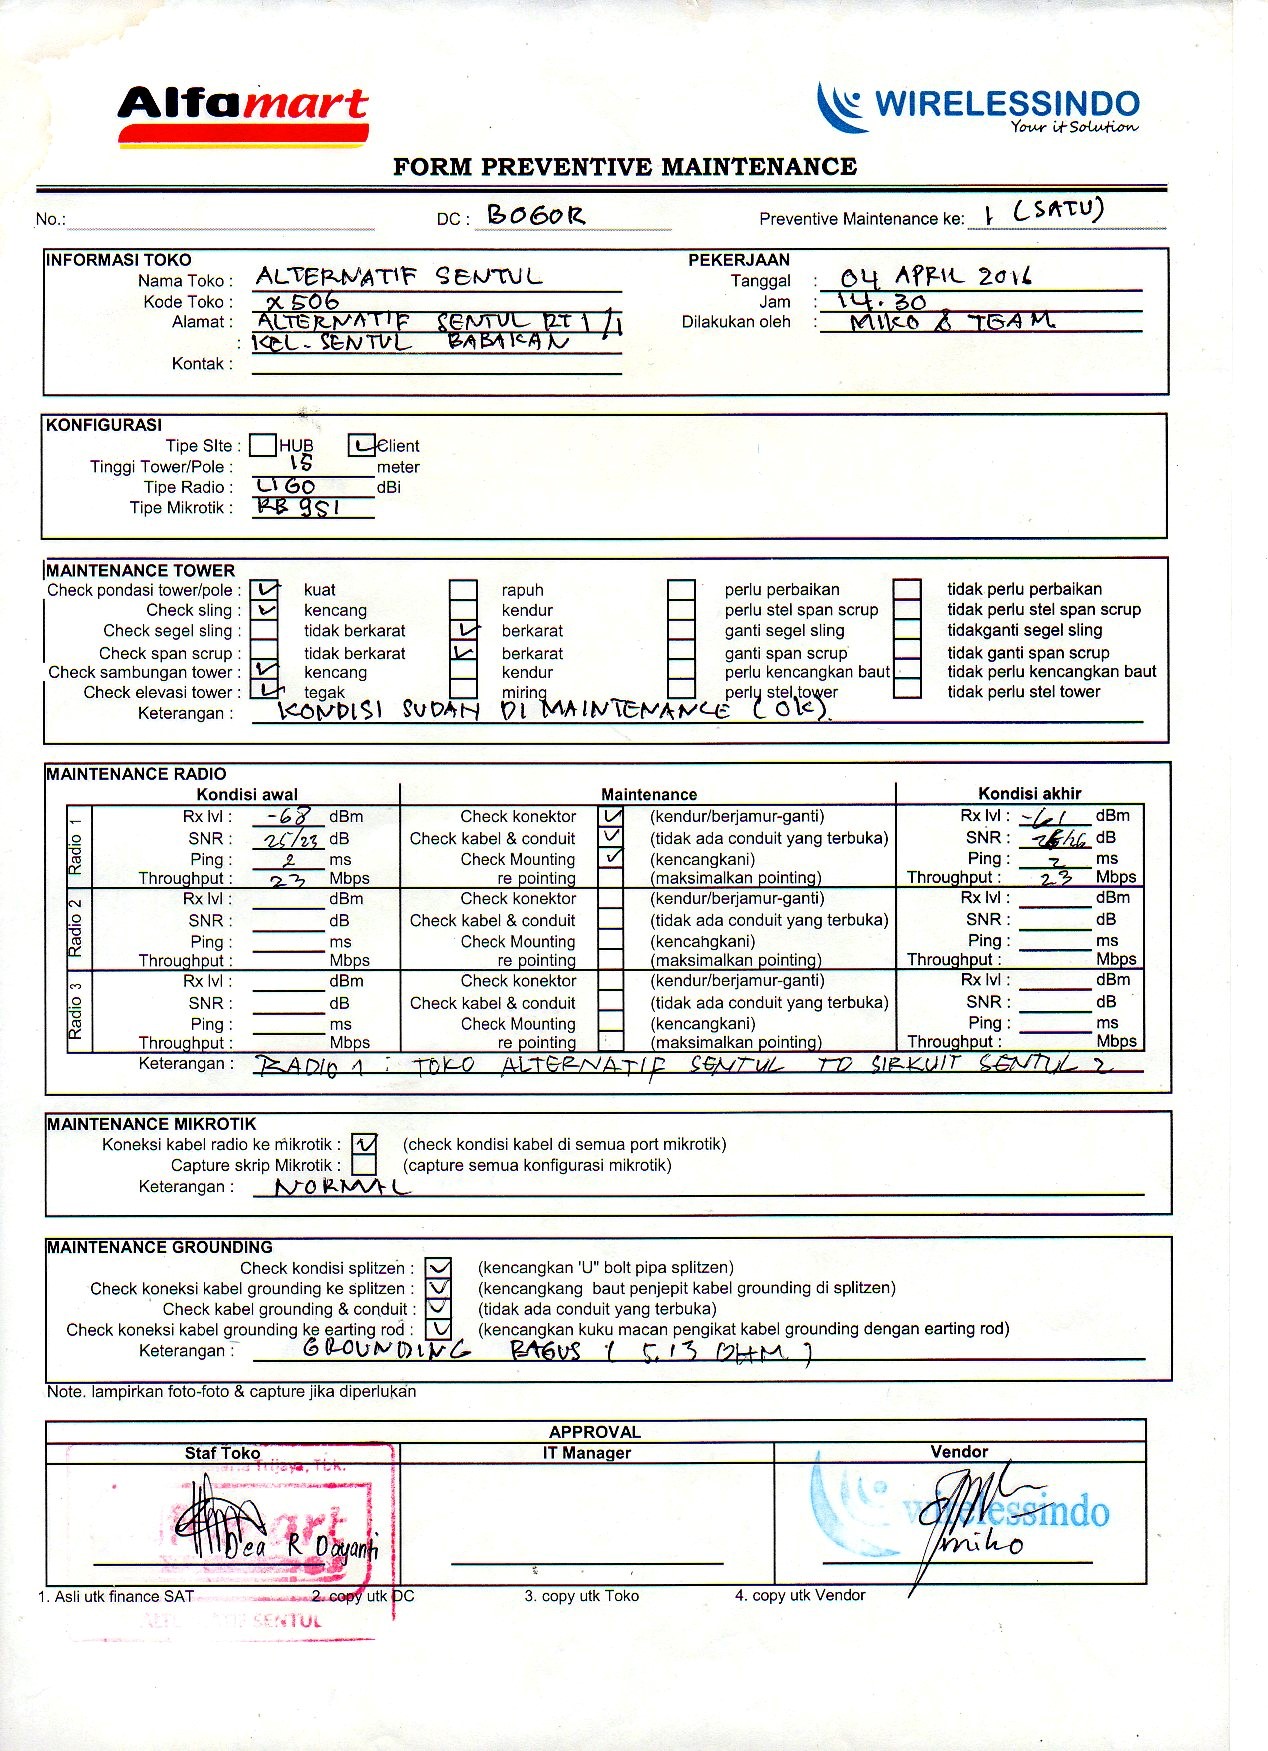 Alfamart WIRELESSINDO
Your it Solution
FORM PREVENTIVE MAINTENANCE
No.: DC : BOGOR Preventive Maintenance ke: 1 (SATU)
INFORMASI TOKO PEKERJAAN
Nama Toko : ALTERNATIF SENTUL Tanggal : 04 APRIL 2016
Kode Toko : X506 Jam : 14.30
Alamat : ALTERNATIF SENTUL RT 1/1 Dilakukan oleh : MIKO & TEAM
: KEL-SENTUL BABAKAN
Kontak :
KONFIGURASI
Tipe SIte : HUB Client
Tinggi Tower/Pole : 15 meter
Tipe Radio : LIGO dBi
Tipe Mikrotik : RB 951
MAINTENANCE TOWER
Check pondasi tower/pole : kuat rapuh perlu perbaikan tidak perlu perbaikan
Check sling : kencang kendur perlu stel span scrup tidak perlu stel span scrup
Check segel sling : tidak berkarat berkarat ganti segel sling tidakganti segel sling
Check span scrup : tidak berkarat berkarat ganti span scrup tidak ganti span scrup
Check sambungan tower : kencang kendur perlu kencangkan baut tidak perlu kencangkan baut
Check elevasi tower : tegak miring perlu stel tower tidak perlu stel tower
Keterangan : KONDISI SUDAH DI MAINTENANCE (OK).
MAINTENANCE RADIO
Kondisi awal Maintenance Kondisi akhir
Radio 1
Rx lvl : -68 dBm Check konektor (kendur/berjamur-ganti) Rx lvl : -61 dBm
SNR : 25/23 dB Check kabel & conduit (tidak ada conduit yang terbuka) SNR : dB
Ping : 2 ms Check Mounting (kencangkani) Ping : 2 ms
Throughput : 23 Mbps re pointing (maksimalkan pointing) Throughput : 23 Mbps
Radio 2
Rx lvl : dBm Check konektor (kendur/berjamur-ganti) Rx lvl : dBm
SNR : dB Check kabel & conduit (tidak ada conduit yang terbuka) SNR : dB
Ping : ms Check Mounting (kencahgkani) Ping : ms
Throughput : Mbps re pointing (maksimalkan pointing) Throughput : Mbps
Radio 3
Rx lvl : dBm Check konektor (kendur/berjamur-ganti) Rx lvl : dBm
SNR : dB Check kabel & conduit (tidak ada conduit yang terbuka) SNR : dB
Ping : ms Check Mounting (kencangkani) Ping : ms
Throughput : Mbps re pointing (maksimalkan pointing) Throughput : Mbps
Keterangan : RADIO 1 : TOKO ALTERNATIF SENTUL TO SIRKUIT SENTUL 2
MAINTENANCE MIKROTIK
Koneksi kabel radio ke mikrotik : (check kondisi kabel di semua port mikrotik)
Capture skrip Mikrotik : (capture semua konfigurasi mikrotik)
Keterangan : NORMAL
MAINTENANCE GROUNDING
Check kondisi splitzen : (kencangkan 'U" bolt pipa splitzen)
Check koneksi kabel grounding ke splitzen : (kencangkang baut penjepit kabel grounding di splitzen)
Check kabel grounding & conduit : (tidak ada conduit yang terbuka)
Check koneksi kabel grounding ke earting rod : (kencangkan kuku macan pengikat kabel grounding dengan earting rod)
Keterangan : GROUNDING BAGUS ( 5.13 OHM )
Note. lampirkan foto-foto & capture jika diperlukan
APPROVAL
Staf Toko IT Manager Vendor
Trijaya, Tbk.
wirelessindo
Dea R Dayanti miko
1. Asli utk finance SAT 2. copy utk DC 3. copy utk Toko 4. copy utk Vendor
SENTUL